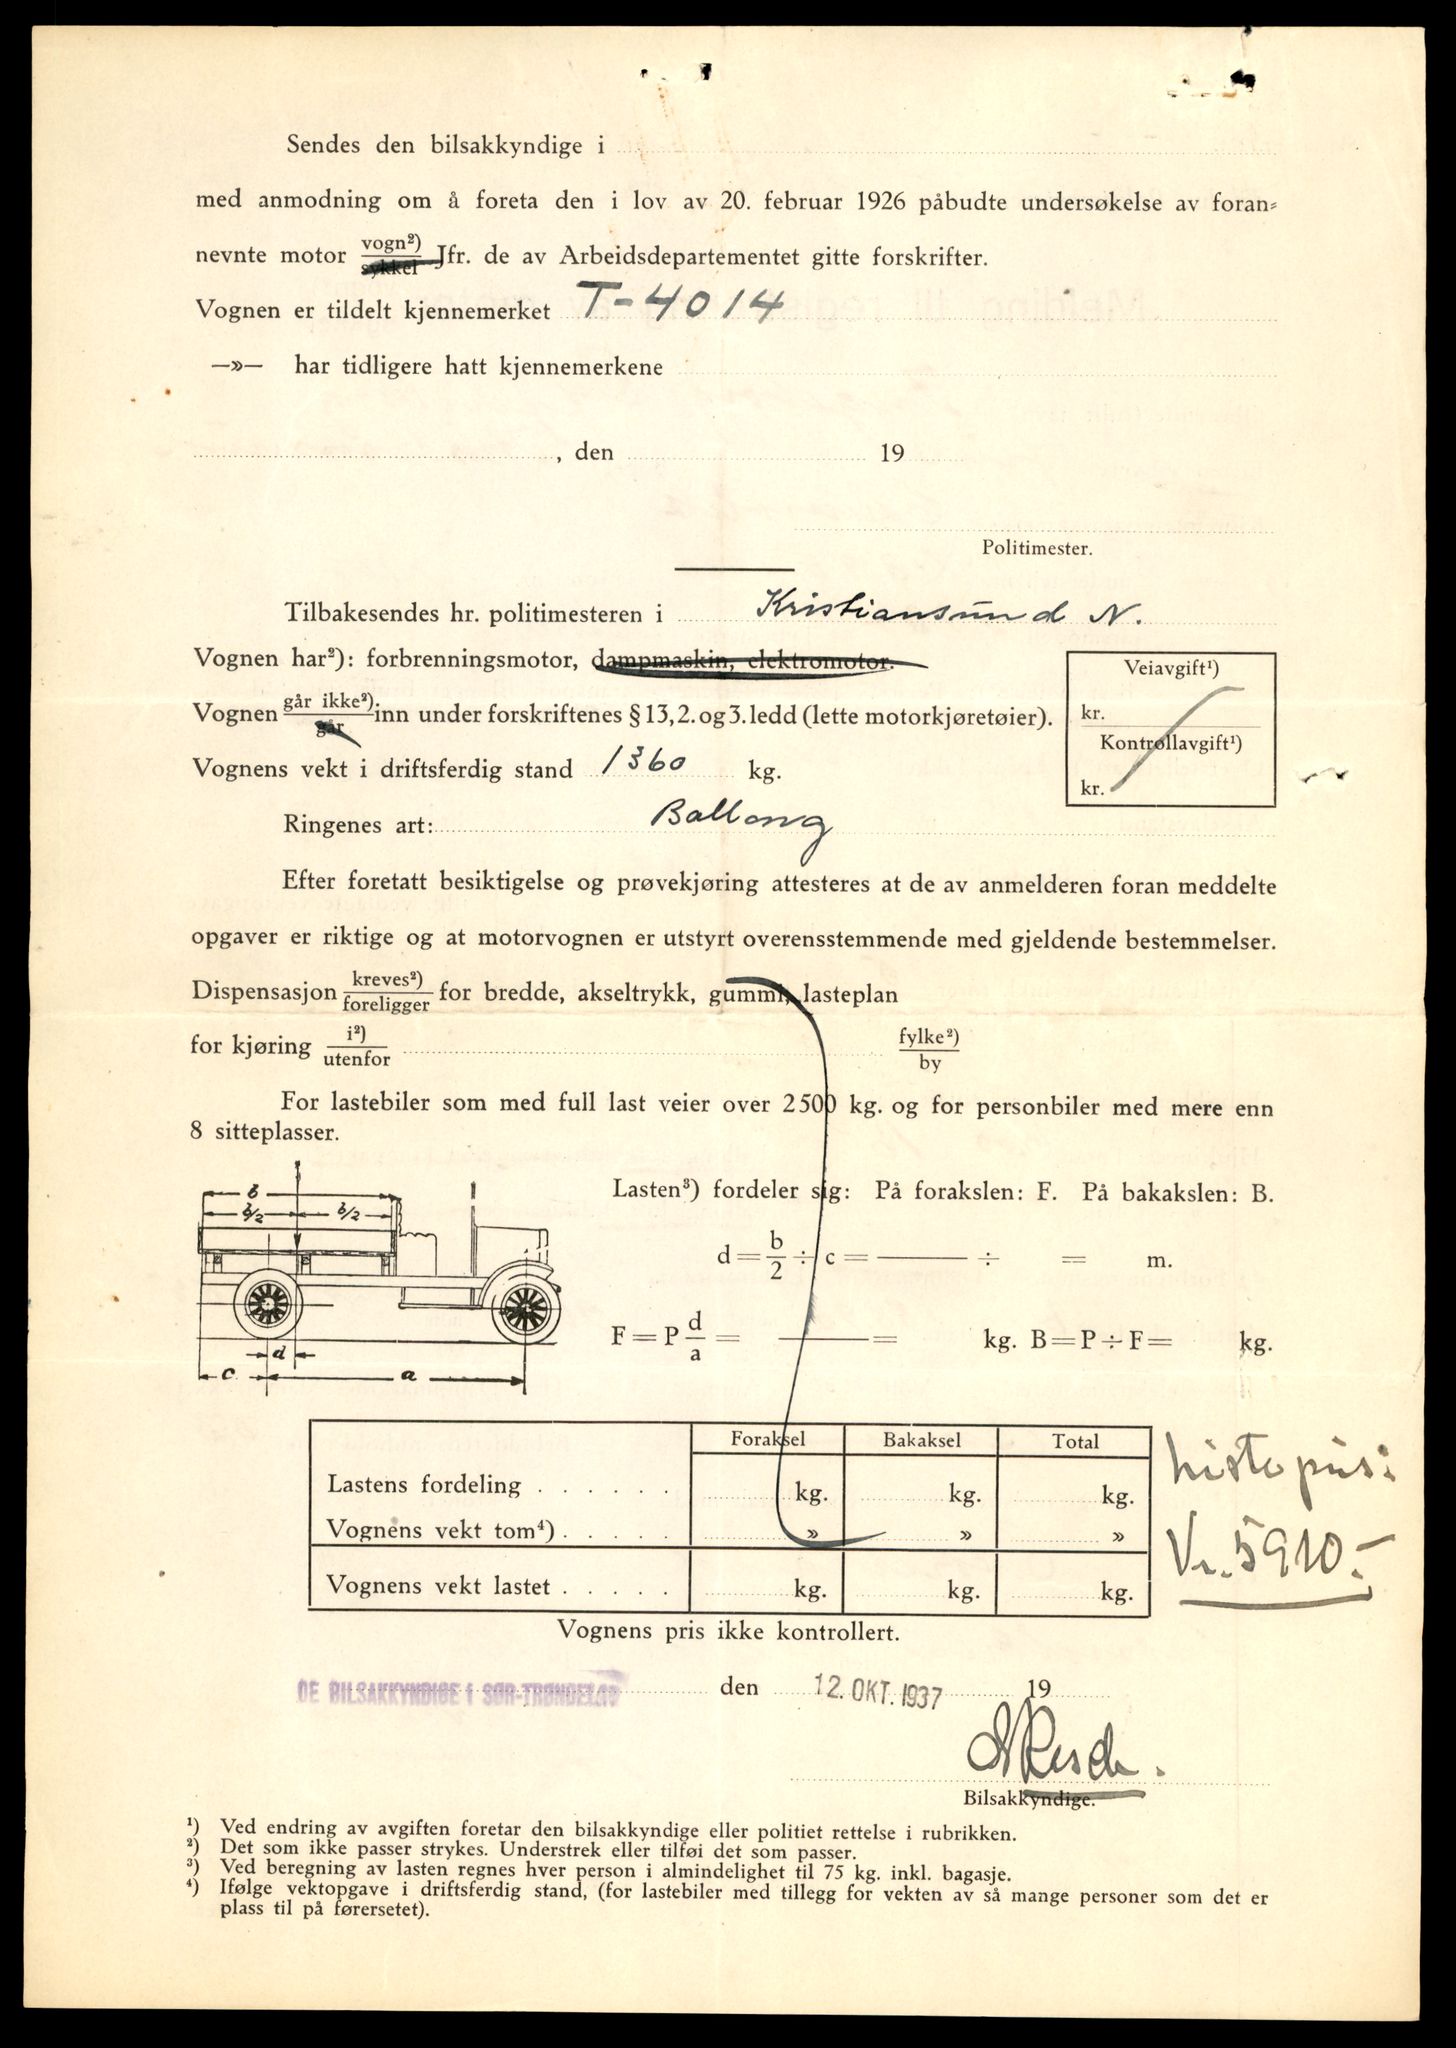 Sendes den bilsakkyndige i
med anmodning om å foreta den i lov av 20. februar 1926 påbudte undersøkelse av foran=
nevnte motor vogn²) sykkel Jfr. de av Arbeidsdepartementet gitte forskrifter.
Vognen er tildelt kjennemerket T-4014
—»— har tidligere hatt kjennemerkene
, den 19
Politimester.
Tilbakesendes hr. politimesteren i Kristiansund N.
Vognen har²): forbrenningsmotor, dampmaskin, elektromotor.
Veiavgift¹)
Vognen går ikke²) går inn under forskriftenes § 13, 2. og 3. ledd (lette motorkjøretøier).
kr.
Kontrollavgift¹)
Vognens vekt i driftsferdig stand 1360 kg.
kr.
Ringenes art: Ballong
Efter foretatt besiktigelse og prøvekjøring attesteres at de av anmelderen foran meddelte
opgaver er riktige og at motorvognen er utstyrt overensstemmende med gjeldende bestemmelser.
Dispensasjon kreves²) foreligger for bredde, akseltrykk, gummi, lasteplan
for kjøring i²) utenfor fylke²) by
For lastebiler som med full last veier over 2500 kg. og for personbiler med mere enn
8 sitteplasser.
b
b/2 b/2
d
c a
Lasten³) fordeler sig: På forakslen: F. På bakakslen: B.
d = b/2 ÷ c = ——— ÷ = m.
F = P d/a = ——— = kg. B = P ÷ F = kg.
Foraksel Bakaksel Total
Lastens fordeling . . . . . . kg. kg. kg.
Vognens vekt tom⁴) . . . . . » » »
Vognens vekt lastet . . . . . kg. kg. kg.
Liste pris:
Kr. 5910.-
Vognens pris ikke kontrollert.
DE BILSAKKYNDIGE I SØR-TRØNDELAG den 12. OKT. 1937 19
Bilsakkyndige.
¹) Ved endring av avgiften foretar den bilsakkyndige eller politiet rettelse i rubrikken.
²) Det som ikke passer strykes. Understrek eller tilføi det som passer.
³) Ved beregning av lasten regnes hver person i almindelighet til 75 kg. inkl. bagasje.
⁴) Ifølge vektopgave i driftsferdig stand, (for lastebiler med tillegg for vekten av så mange personer som det er
plass til på førersetet).